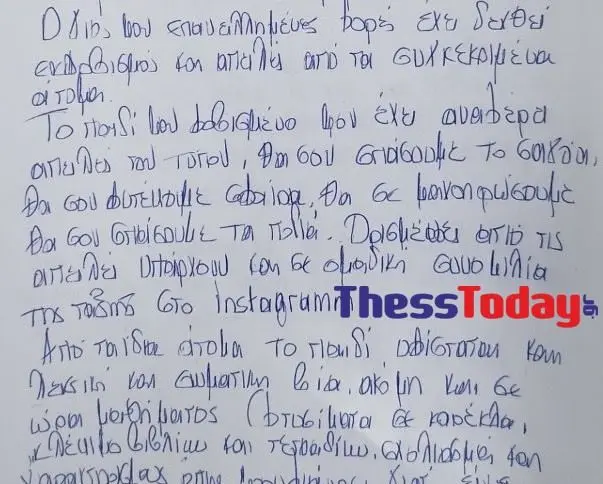 Ο γιός μου επανειλημμένες φορές έχει δεχθεί
και απειλές από τα συγκεκριμένα
άτομα.
Το παιδί μου μου έχει αναφέρει
απειλές του τύπου, θα σου σπάσουμε το
Θα σου φυτέψουμε σφαίρα, θα σε μαχαιρώσουμε
θα σου σπάσουμε τα πόδια. Ορισμένες από τις
απειλές υπάρχουν και σε ομαδική συνομιλία
της τάξης στο Instagram
ThessToday.gr
Από τα ίδια άτομα το παιδί υφίσταται και
λεκτική και σωματική βία, ακόμη και σε
ώρα μαθήματος (φτυσίματα σε καρέκλα,
κλέψιμο βιβλίων και τετραδίων, και